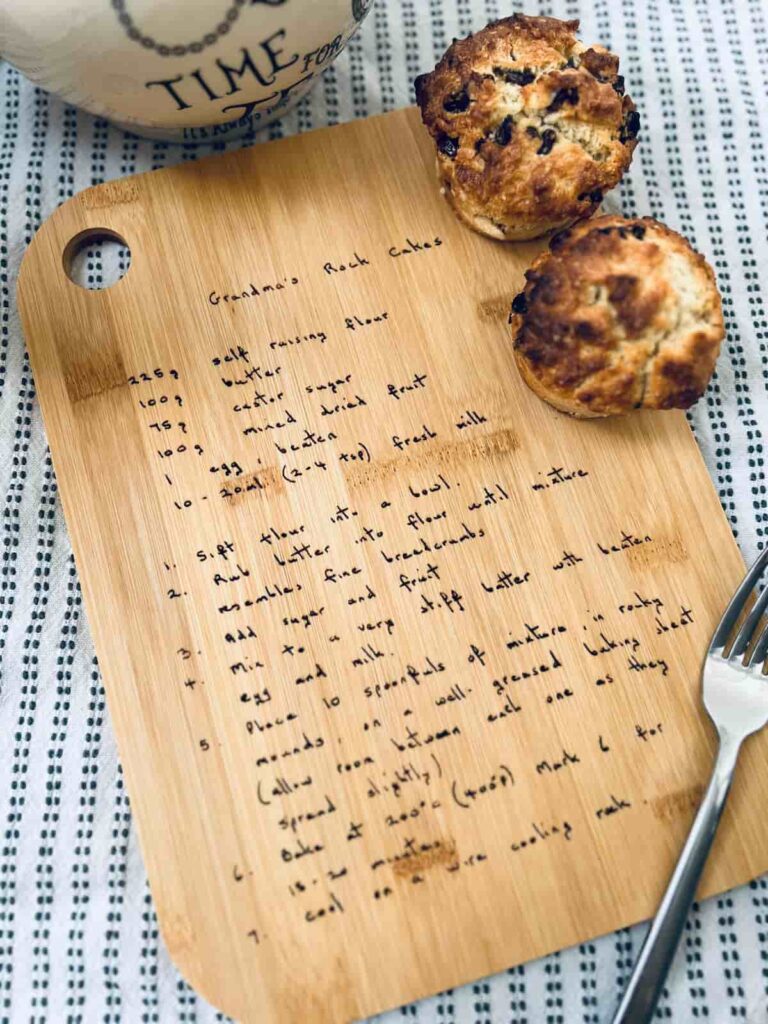 TIME FOR
It's Always
Grandma's Rock Cakes
225g self raising flour
100g butter
75g castor sugar
100g mixed dried fruit
1 egg, beaten
10-20ml (2-4 tsp) fresh milk
1. Sift flour into a bowl.
2. Rub butter into flour until mixture
resembles fine breadcrumbs
3. Add sugar and fruit
4. Mix to a very stiff batter with beaten
egg and milk.
5. Place 10 spoonfuls of mixture, in rocky
mounds, on a well-greased baking sheet
(allow room between each one as they
spread slightly)
6. Bake at 200°C (405°F) Mark 6 for
15-20 minutes
7. Cool on a wire cooling rack.